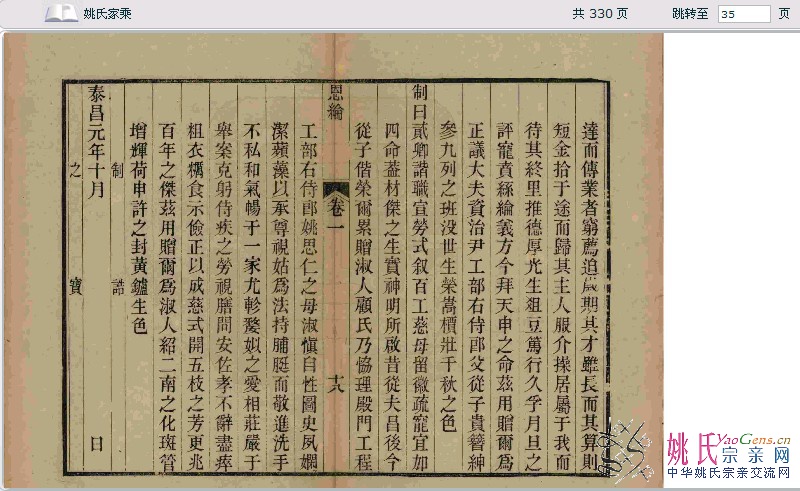 姚氏家乘
共 330 页
跳转至 35 页
達而傳業者窮薦追歲期其才雖長而其算則
短金拾于途而歸其主人服介操居屬于我而
待其終里推德厚光生俎豆篤行久孚月旦之
評寵賁絲綸義方今拜天申之命茲用贈爾爲
正議大夫資治尹工部右侍郎父從子貴簪紳
參九列之班沒世生榮嵩檟壯千秋之色
制曰貳卿諧職宣勞式叙百工慈母留徽疏寵宜加
四命葢材傑之生實神明所啟昔從夫昌後今
從子偕榮爾累贈淑人顧氏乃協理殿門工程
恩綸
卷一
十六
工部右侍郎姚思仁之母淑愼自性圖史夙嫻
潔蘋藻以承尊視姑爲法持脯脡而敬進洗手
不私和氣暢于一家尤軫娣姒之愛相莊嚴于
舉案克躬侍疾之勞視膳問安佐孝不辭盡瘁
粗衣糲食示儉正以成慈式開五枝之芳更兆
百年之傑茲用贈爾爲淑人紹二南之化斑管
增輝荷申許之封黃鑪生色
制誥
泰昌元年十月 日
之寶
姚氏宗亲网
YaoGens.cn
中华姚氏宗亲交流网